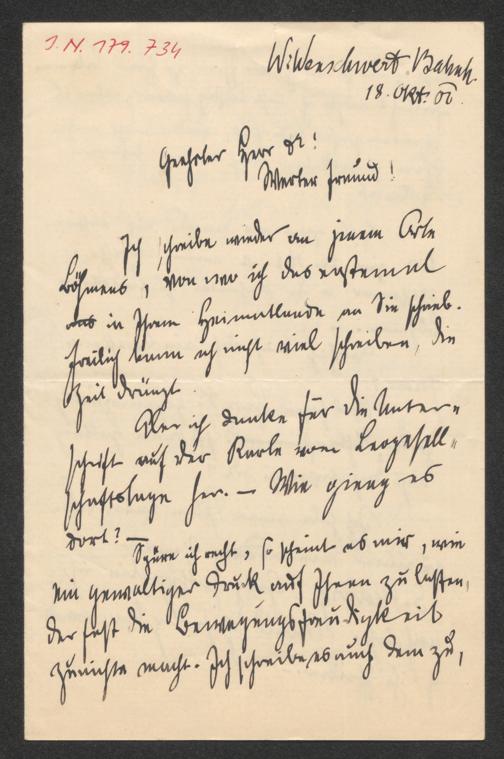 I. N. 179. 734
Wildenschwert Bahnh.
18. Okt. 00.
Geehrter Herr Dr!
Werter Freund!
Ich schreibe wieder an jenem Orte
Böhmens, von wo ich das erstemal
aus in Ihrem Heimatlande an Sie schrieb.
Freilich kann ich nicht viel schreiben, die
Zeit drängt.
Nur ich danke für die Unter=
schrift auf der Karte vom Leogesell=
schaftstage her. — Wie gieng es
dort? —
Spüre ich recht, so scheint es mir, wie
ein gewaltiger Druck auf Ihnen zu lasten,
der fast die Bewegungsfreudigkeit
zunichte macht. Ich schreibe es auch dem zu,